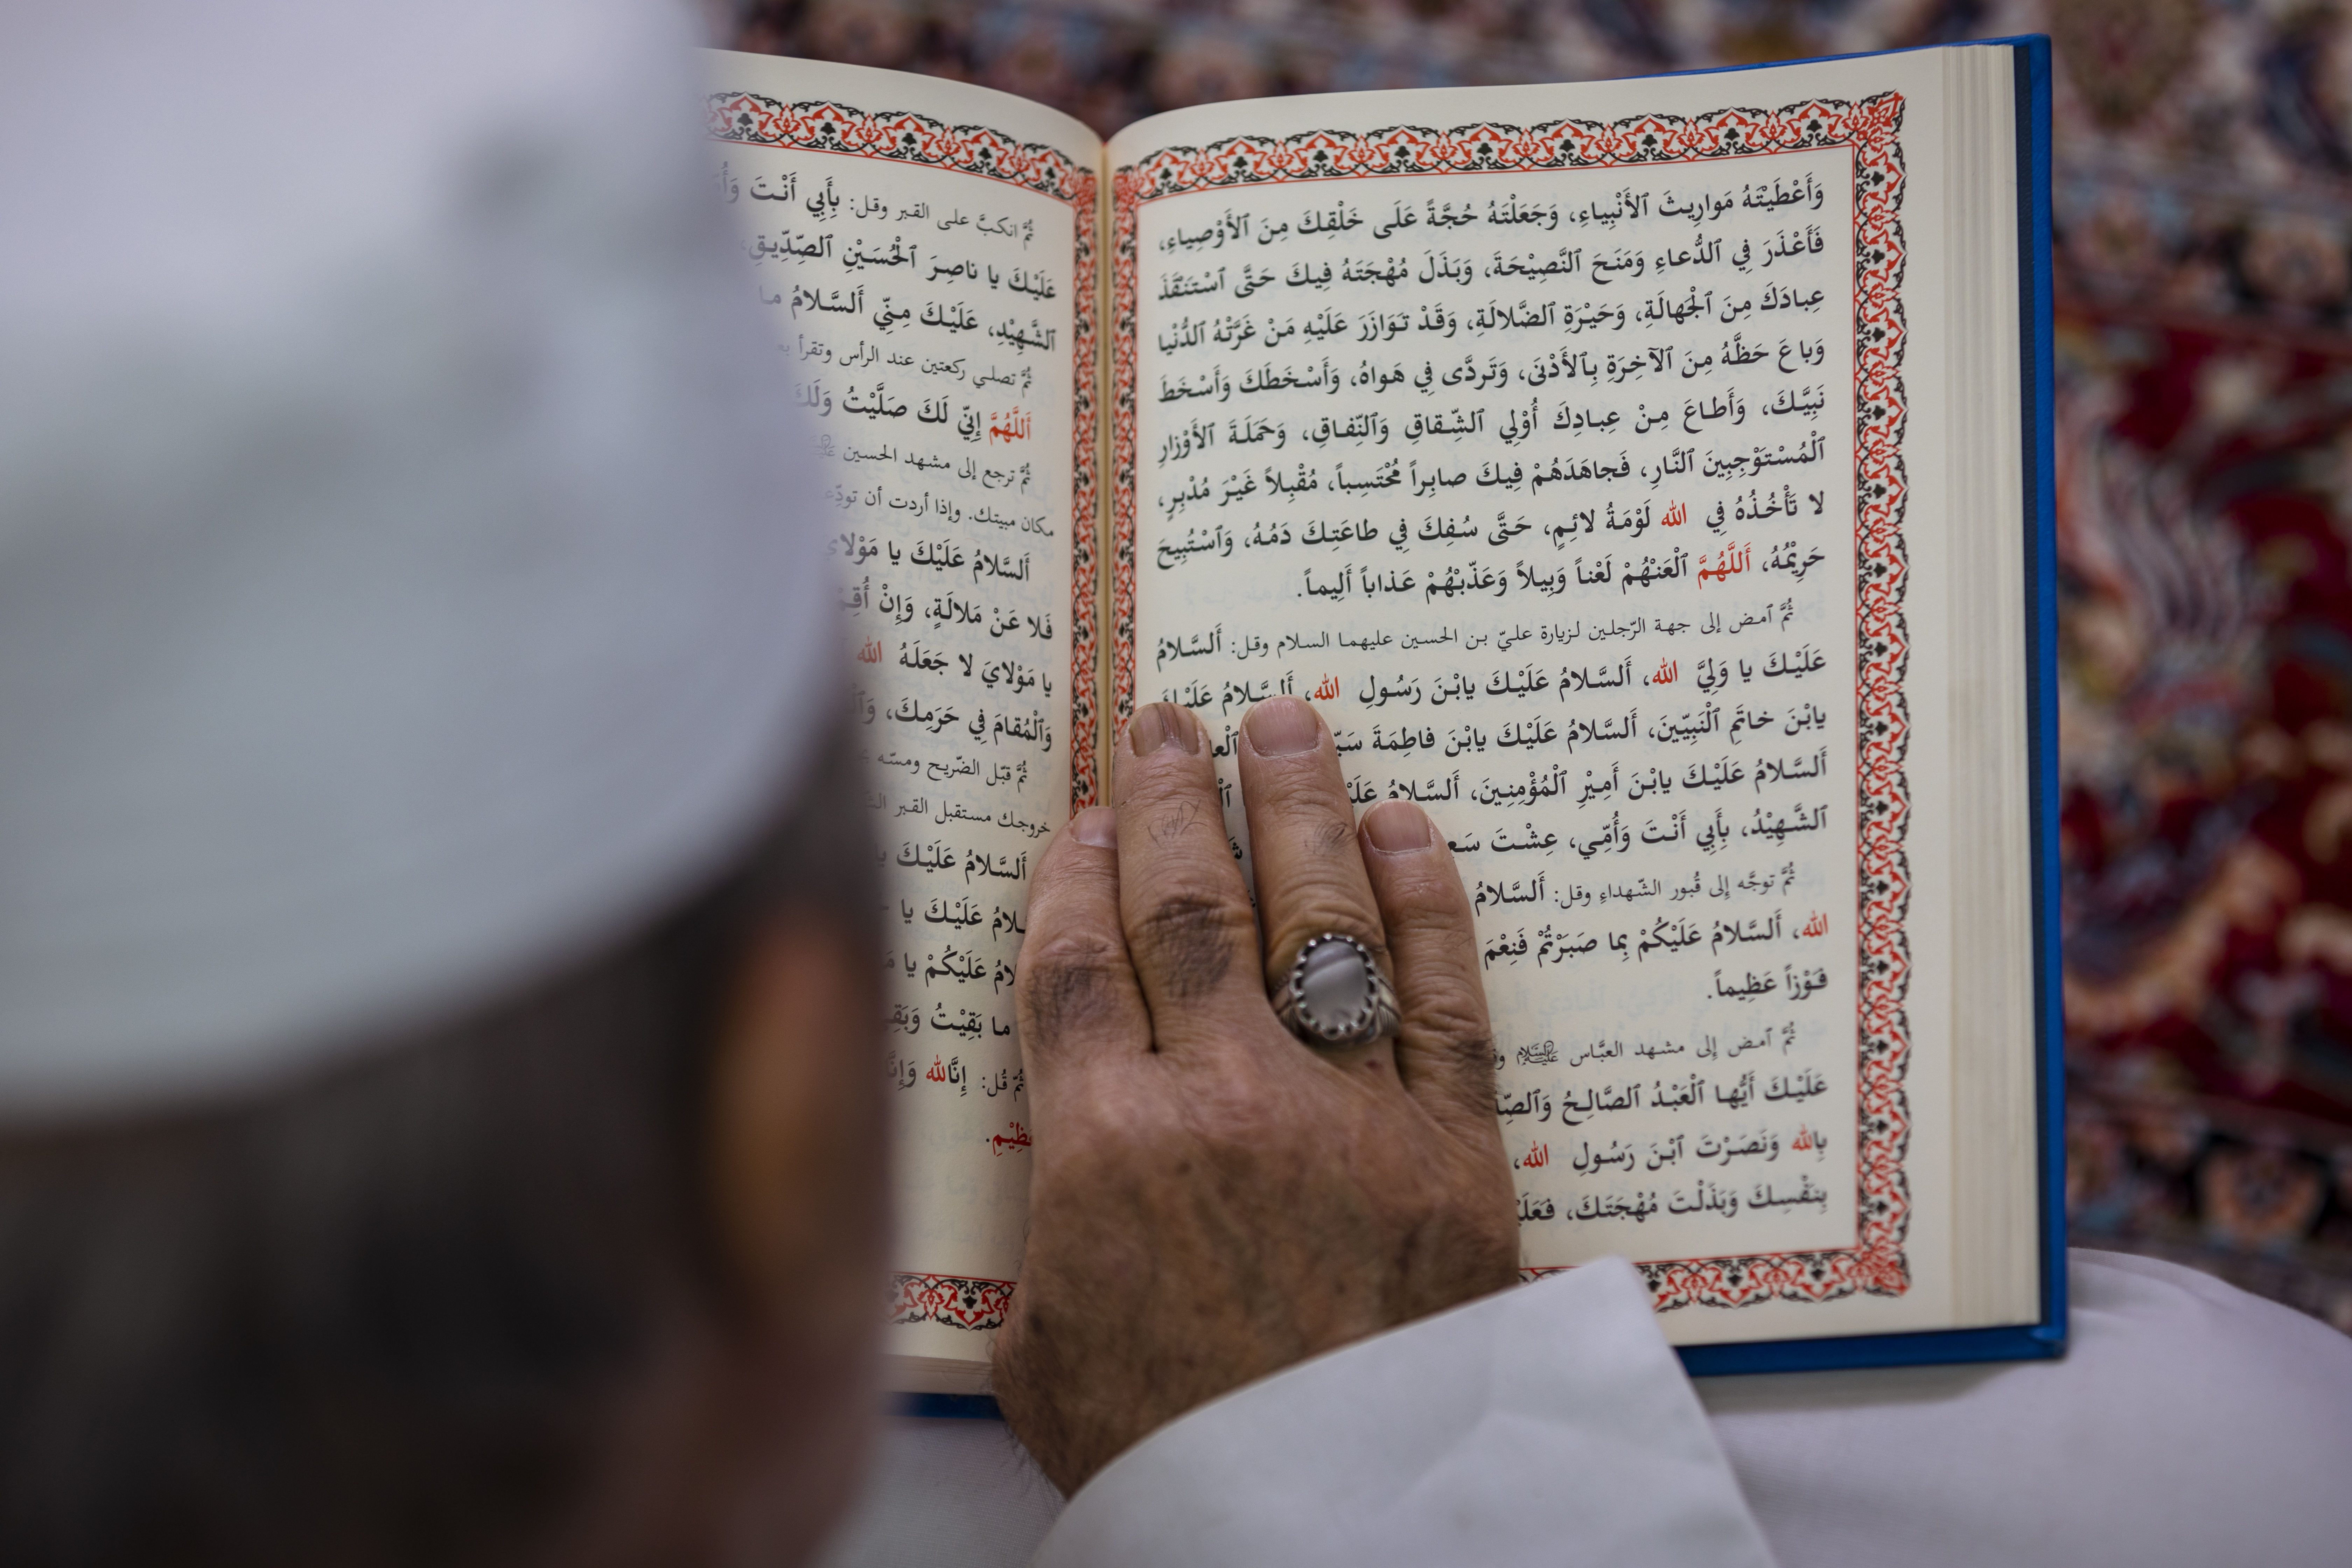 وَأَعْطَيْتَهُ مَوارِيثَ ٱلأَنْبِياءِ، وَجَعَلْتَهُ حُجَّةً عَلَى خَلْقِكَ مِنَ ٱلأَوْصِياءِ،
فَأَعْذَرَ فِي ٱلدُّعاءِ وَمَنَحَ ٱلنَّصِيْحَةَ، وَبَذَلَ مُهْجَتَهُ فِيكَ حَتَّى ٱسْتَنْقَذَ
عِبادَكَ مِنَ ٱلْجَهالَةِ، وَحَيْرَةِ ٱلضَّلالَةِ، وَقَدْ تَوَازَرَ عَلَيْهِ مَنْ غَرَّتْهُ ٱلدُّنْيا
وَباعَ حَظَّهُ مِنَ ٱلآخِرَةِ بِٱلأَدْنَى، وَتَردَّى فِي هَواهُ، وَأَسْخَطَكَ وَأَسْخَطَ
نَبِيَّكَ، وَأَطاعَ مِنْ عِبادِكَ أُوْلِي ٱلشِّقاقِ وَٱلنِّفاقِ، وَحَمَلَةَ ٱلأَوْزارِ
ٱلْمُسْتَوْجِبِينَ ٱلنَّارِ، فَجاهَدَهُمْ فِيكَ صابِراً مُحْتَسِباً، مُقْبِلاً غَيْرَ مُدْبِرٍ،
لا تَأْخُذُهُ فِي الله لَوْمَةُ لائِمٍ، حَتَّى سُفِكَ فِي طاعَتِكَ دَمُهُ، وَٱسْتُبِيحَ
حَرِيْمُهُ، أَللَّهُمَّ ٱلْعَنْهُمْ لَعْناً وَبِيلاً وَعَذِّبْهُمْ عَذاباً أَلِيماً.
ثُمَّ ٱمض إلى جهة الرّجلين لزيارة عليّ بن الحسين عليهما السلام وقل: أَلسَّلامُ
عَلَيْكَ يا وَلِيَّ الله، أَلسَّلامُ عَلَيْكَ يابْنَ رَسُولِ الله، أَلسَّلامُ عَلَيْكَ
يابْنَ خاتَمِ ٱلْنَبِيِّينَ، أَلسَّلامُ عَلَيْكَ يابْنَ فاطِمَةَ
أَلسَّلامُ عَلَيْكَ يابْنَ أَمِيْرِ ٱلْمُؤْمِنِينَ، أَلسَّلامُ
ٱلشَّهِيْدُ، بِأَبِي أَنْتَ وَأُمِّي، عِشْتَ
ثُمَّ توجَّه إلى قُبور الشّهداءِ وقل: أَلسَّلامُ
الله، أَلسَّلامُ عَلَيْكُمْ بِما صَبَرْتُمْ فَنِعْمَ
فَوْزاً عَظِيماً.
ثُمَّ ٱمض إلى مشهد العبَّاس عَلَيْهِ السَّلام
عَلَيْكَ أَيُّها ٱلْعَبْدُ ٱلصَّالِحُ
بِالله وَنَصَرْتَ ٱبْنَ رَسُولِ الله،
بِنَفْسِكَ وَبَذَلْتَ مُهْجَتَكَ،
ثُمَّ انكبَّ على القبر وقل: بِأَبِي أَنْتَ
عَلَيْكَ يا ناصِرَ ٱلْحُسَيْنِ ٱلصِّدِّيقِ
ٱلشَّهِيْدِ، عَلَيْكَ مِنِّي أَلسَّلامُ ما
ثُمَّ تصلي ركعتين عند الرأس وتقرأ
أَللَّهُمَّ إِنِّي لَكَ صَلَّيْتُ وَلَكَ
ثُمَّ ترجع إلى مشهد الحسين
مكان مبيتك. وإذا أردت أن
أَلسَّلامُ عَلَيْكَ يا مَوْلايَ
فَلا عَنْ مَلالَةٍ، وَإِنْ
يا مَوْلايَ لا جَعَلَهُ الله
وَٱلْمُقامَ فِي حَرَمِكَ،
ثُمَّ قبّل الضّريح ومسّه
خروجك مستقبل القبر
أَلسَّلامُ عَلَيْكَ
عَلَيْكَ يا
عَلَيْكُمْ يا
ما بَقِيْتُ
ثُمّ قُل: إِنَّالله